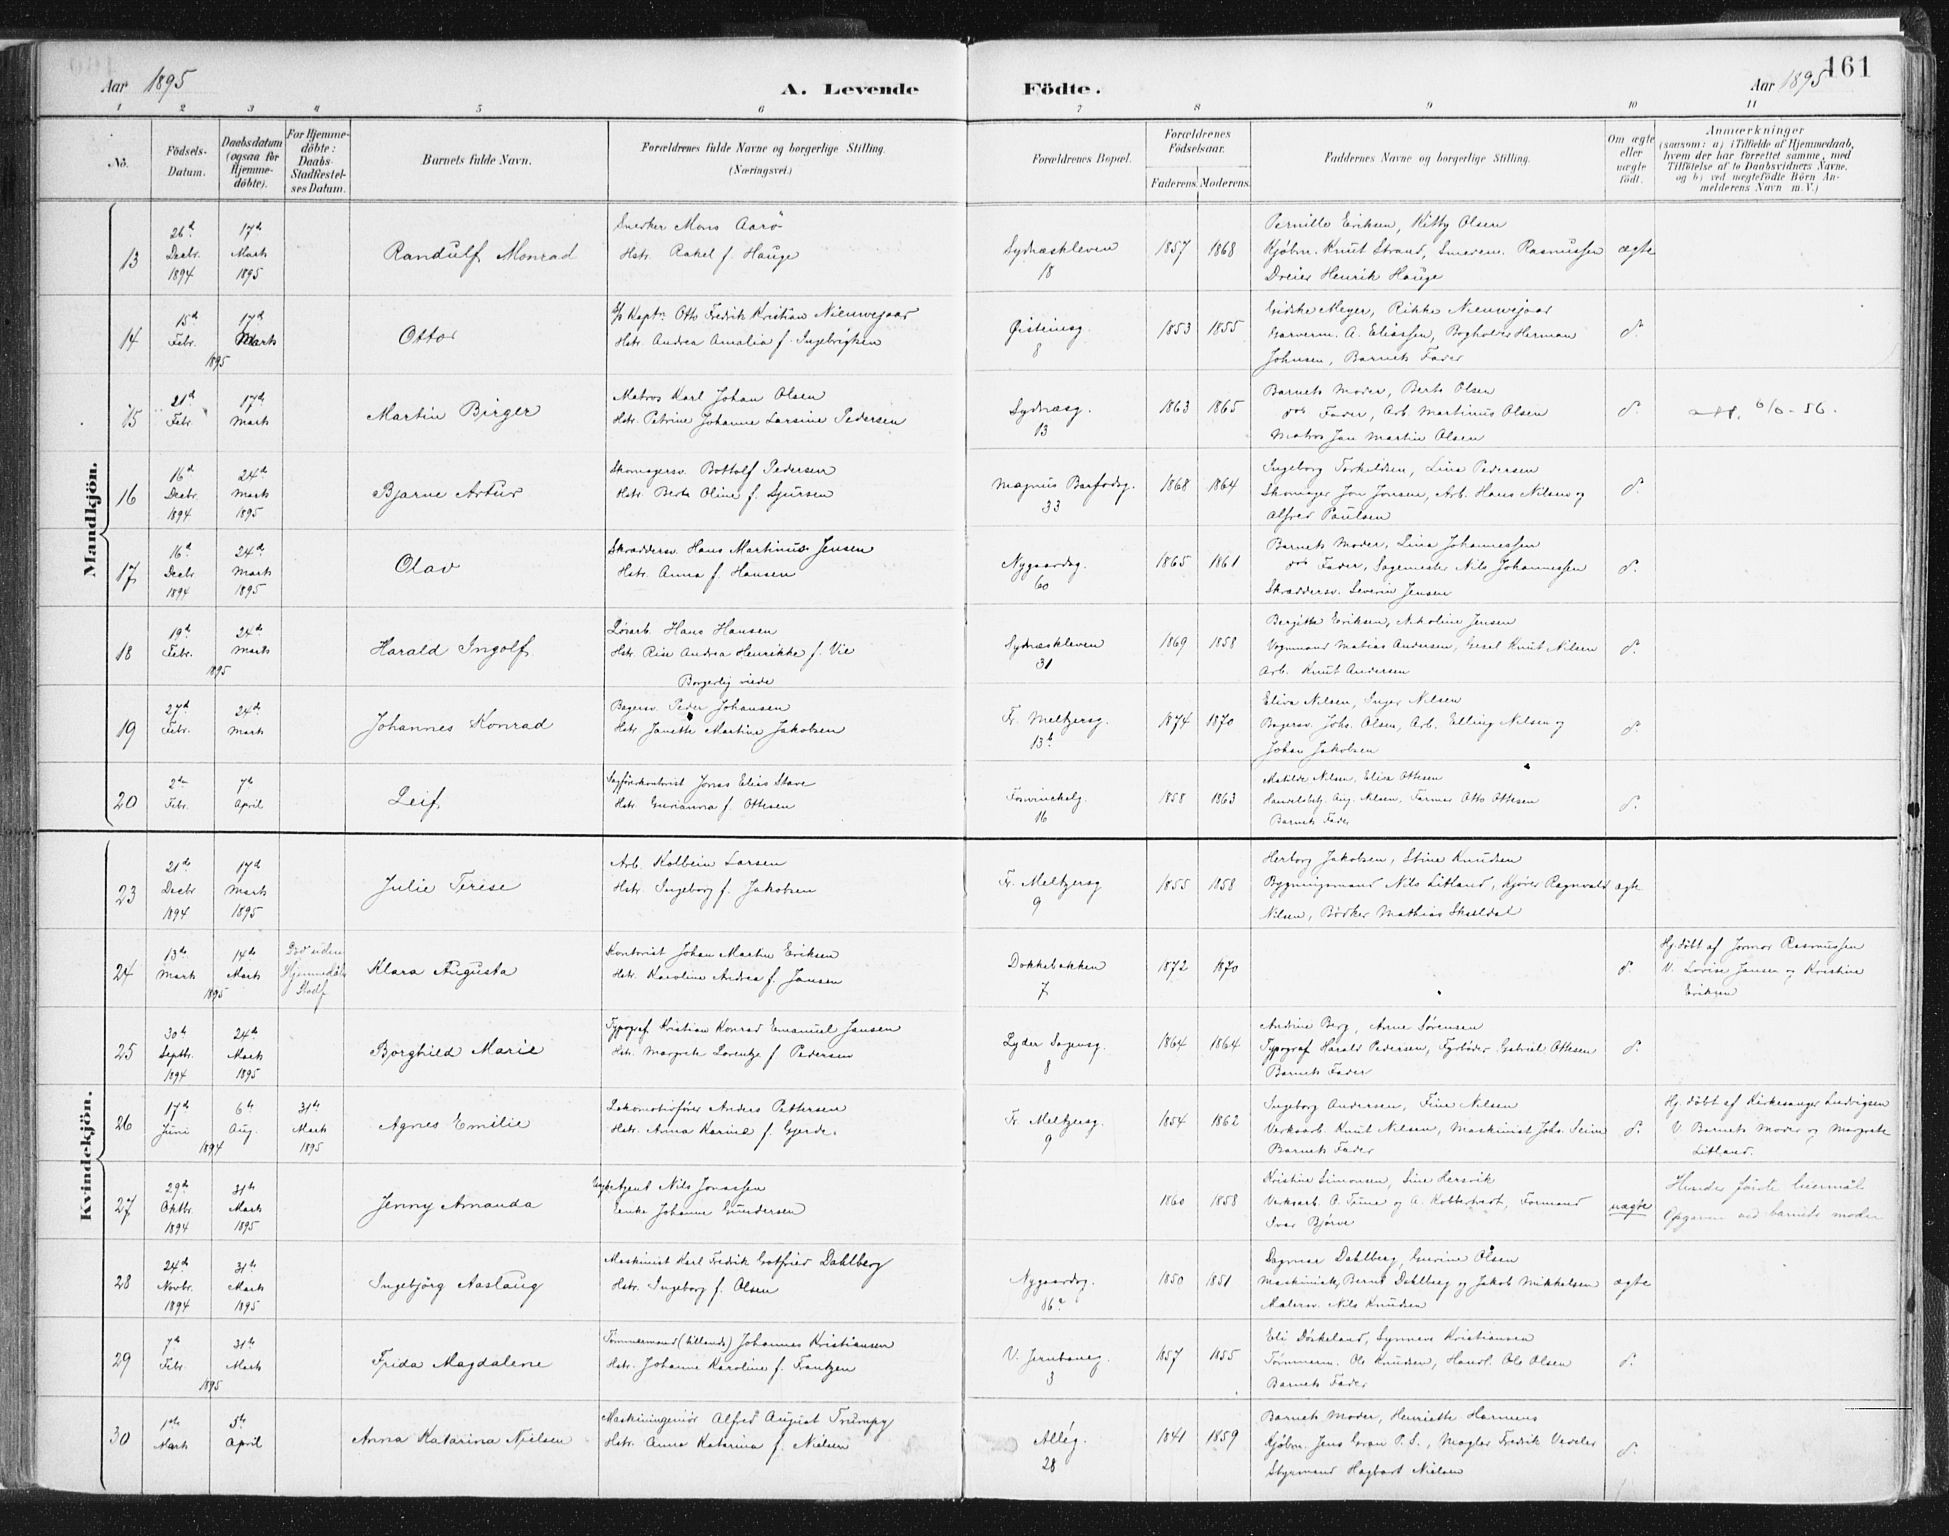 Aar 1895
A. Levende
Födte.
Aar 1895
161
1 2 3 4 5 6 7 8 9 10 11
No.
Födsels-Datum.
Daabsdatum (ogsaa for Hjemme-döbte).
For Hjemme-döbte: Daabs-Stadfæstel-ses Datum.
Barnets fulde Navn.
Forældrenes fulde Navne og borgerlige Stilling.
(Næringsvei.)
Forældrenes Bopæl.
Forældrenes Födselsaar.
Faderens. Moderens.
Faddernes Navne og borgerlig Stilling.
Om ægte eller uægte födt.
Anmærkninger
(saasom: a) i Tilfælde af Hjemmedaab,
hvem der har forrettet samme, med
Tilföielse af to Daabsvidners Navne,
og b) ved uægtefödte Börn An-
melderens Navn m. V.)
Mandkjön.
13
26de Decbr. 1894
17de Marts 1895
Randulf Monrad
Snedker Mons Aarö
Hstr. Rakel f. Hauge
Sydnæskleven 18
1857 1868
Pernille Eriksen, Kitty Olsen
Kjøbm. Knut Strand, Smedem. Rasmussen
Dreier Henrik Hauge
ægte
14
15d Febr. 17d Marts 1895
Otto
Kapt. Otto Fredrik Kristian Nieuwejaar
Hstr. Andrea Amalia f. Ingebrigtsen
Øisteinsg. 8
1853 1855
Meyer, Rikke Nieuwejaar
Garverm. A. Eliassen, Bogholder Herman
Johnsen, Barnets Fader
15
21d Febr. 17d Marts
Martin Birger
Matros Karl Johan Olsen
Hstr. Petrine Johanne Larsine Pedersen
Sydnæsg. 13
1863 1865
Barnets Moder, Berte Olsen
Fader, Arb. Martinus Olsen
Matros Jan Martin Olsen
16
16 Decbr. 1894
24d Marts 1895
Bjarne Artur
Skomagersv. Bottolf Pedersen
Hstr. Berte Oline f. Sjursen
Magnus Barfodsg. 33
1868 1864
Ingeborg Torkeldsen, Lina Pedersen
Skomager Jon Jonsen, Arb. Hans Nilsen og
Alfred Paulsen
17
16d Decbr. 1894
24d Marts 1895
Olav
Skræddersv. Hans Martinus Jensen
Hstr. Anna f. Hansen
Nygaardsg. 60
1865 1861
Barnets Moder, Lina Johannessen
Fader, Sagemester Nils Johannessen
Skræddersv. Severin Jensen
18
19d Febr. 24d Marts 1895
Harald Ingolf
Hans Hansen
Hstr. Rise Andrea Henrikke f. Vie
Borgerlig viede
Sydnæskleven 31
1869 1858
Bergitte Eriksen, Nikoline Jensen
Vognmand Matias Andersen, Gesel Knut Nilsen
Arb. Knut Andersen
19
27d Febr. 24d Marts
Johannes Konrad
Bagersv. Peder Johansen
Hstr. Janette Martine Jakobsen
Fr. Meltzersg. 13b
1874 1870
Elisa Nilsen, Inger Nilsen
Bagersv. Johs. Olsen, Arb. Elling Nilsen og
Johan Jakobsen
20
2den Febr. 7de April
Leif
Sagførerkontorist Jonas Elias Stave
Hstr. Gurianna f. Ottesen
16
1858 1863
Matilde Nilsen, Elisa Ottesen
Handelsbetj. Aug. Nilsen, Farmer Otto Ottesen
Barnets Fader
Kvindekjön.
23
21de Decbr. 1894
17d Marts 1895
Julie Terese
Arb. Kolbein Larsen
Hstr. Ingeborg f. Jakobsen
Fr. Meltzersg 9
1855 1858
Herborg Jakobsen, Stine Knudsen
Bygningsmand Nils Litland, Kjører Ragnvald
Nilsen, Bødker Mathias Skseldal
ægte
24
13de Marts 14de Marts 1895
Død uden Hjemmedaabs Stadf
Klara Augusta
Kontorist Johan Martin Eriksen
Hstr. Karoline Andrea f. Jansen
Dokkebakken 7
1872 1870
Hj. døbt af Jormor Rasmussen
V. Lovise Jansen og Kristine
Eriksen
25
30te Septbr. 1894
24de Marts 1895
Borghild Marie
Typograf Kristian Konrad Emanuel Jansen
Hstr. Margrete Lorentze f. Pedersen
Lyder Sagensg. 8
1864 1864
Andrine Berg, Arne Sørensen
Typograf Harald Pedersen, Fyrbøder Gabriel Ottesen
Barnets Fader
26
17d Juni 6te Aug. 1894
31te Marts 1895
Agnes Emilie
Lokomotivfører Anders Pettersen
Hstr. Anna Karine f. Gjerde.
Fr. Meltzersg. 9
1854 1862
Ingeborg Andersen, Fine Nilsen
Verksarb. Knut Nilsen, Maskinist Johs. Seim
Barnets Fader
Hj. døbt af Kirkesanger Ludvigsen
V. Barnets Moder og Margrete
Litland.
27
29de Oktbr. 1894
31te Marts 1895
Jenny Amanda
Agent Nils Jonassen
Enke Johanne Gundersen
1860 1858
Kristine Simonsen, Sine Hersvik
Verksarb. O. Tøine og A. Kobbeltvedt, Formand
Ivar Bjørve
uægte
Hendes første leiermål
Opgaven ved barnets moder
28
24d Novbr. 1894
31te Marts 1895
Ingebjörg Aaslaug
Maskinist Karl Fredrik Gotfried Dahlberg
Hstr. Ingeborg f. Olsen
Nygaardsg. 86a
1850 1851
Dagmar Dahlberg, Gurine Olsen
Maskinister Bernt Dahlberg og Jakob Mikkelsen
Malersv. Nils Knudsen
ægte
29
7de Febr. 31te Marts 1895
Frida Magdalene
Tømmermand (tillands) Johannes Kristiansen
Hstr. Johanne Karoline f. Frantzen
V. Jernbaneg. 3
1857 1855
Eli Døskeland, Synneve Kristiansen
Tømmerm. Ole Knudsen, Handl. Ole Olsen
Barnets Fader
30
1ste Marts 5te April
Anna Katarina Nielsen
Maskiningeniør Alfred August Trumpy
Hstr. Anna Katarina f. Nielsen
Allég. 28
1841 1859
Barnets Moder, Henriette Harmens
Kjøbm. Jens Gran P. S., Mægler Fredrik Vedeler
Styrmand Hagbart Nielsen